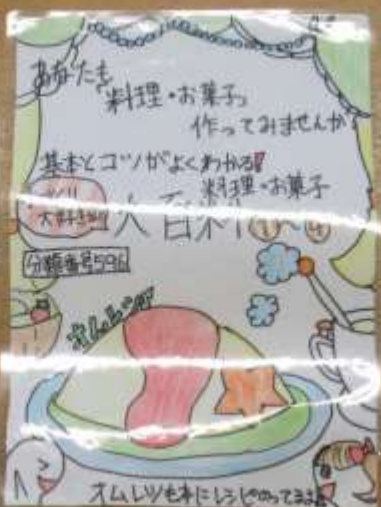 あなたも
料理・お菓子
作ってみませんか
基本とコツがよくわかる!
料理・お菓子
大百科
分類番号596
オムレツ
オムレツも本にレシピのってるよ